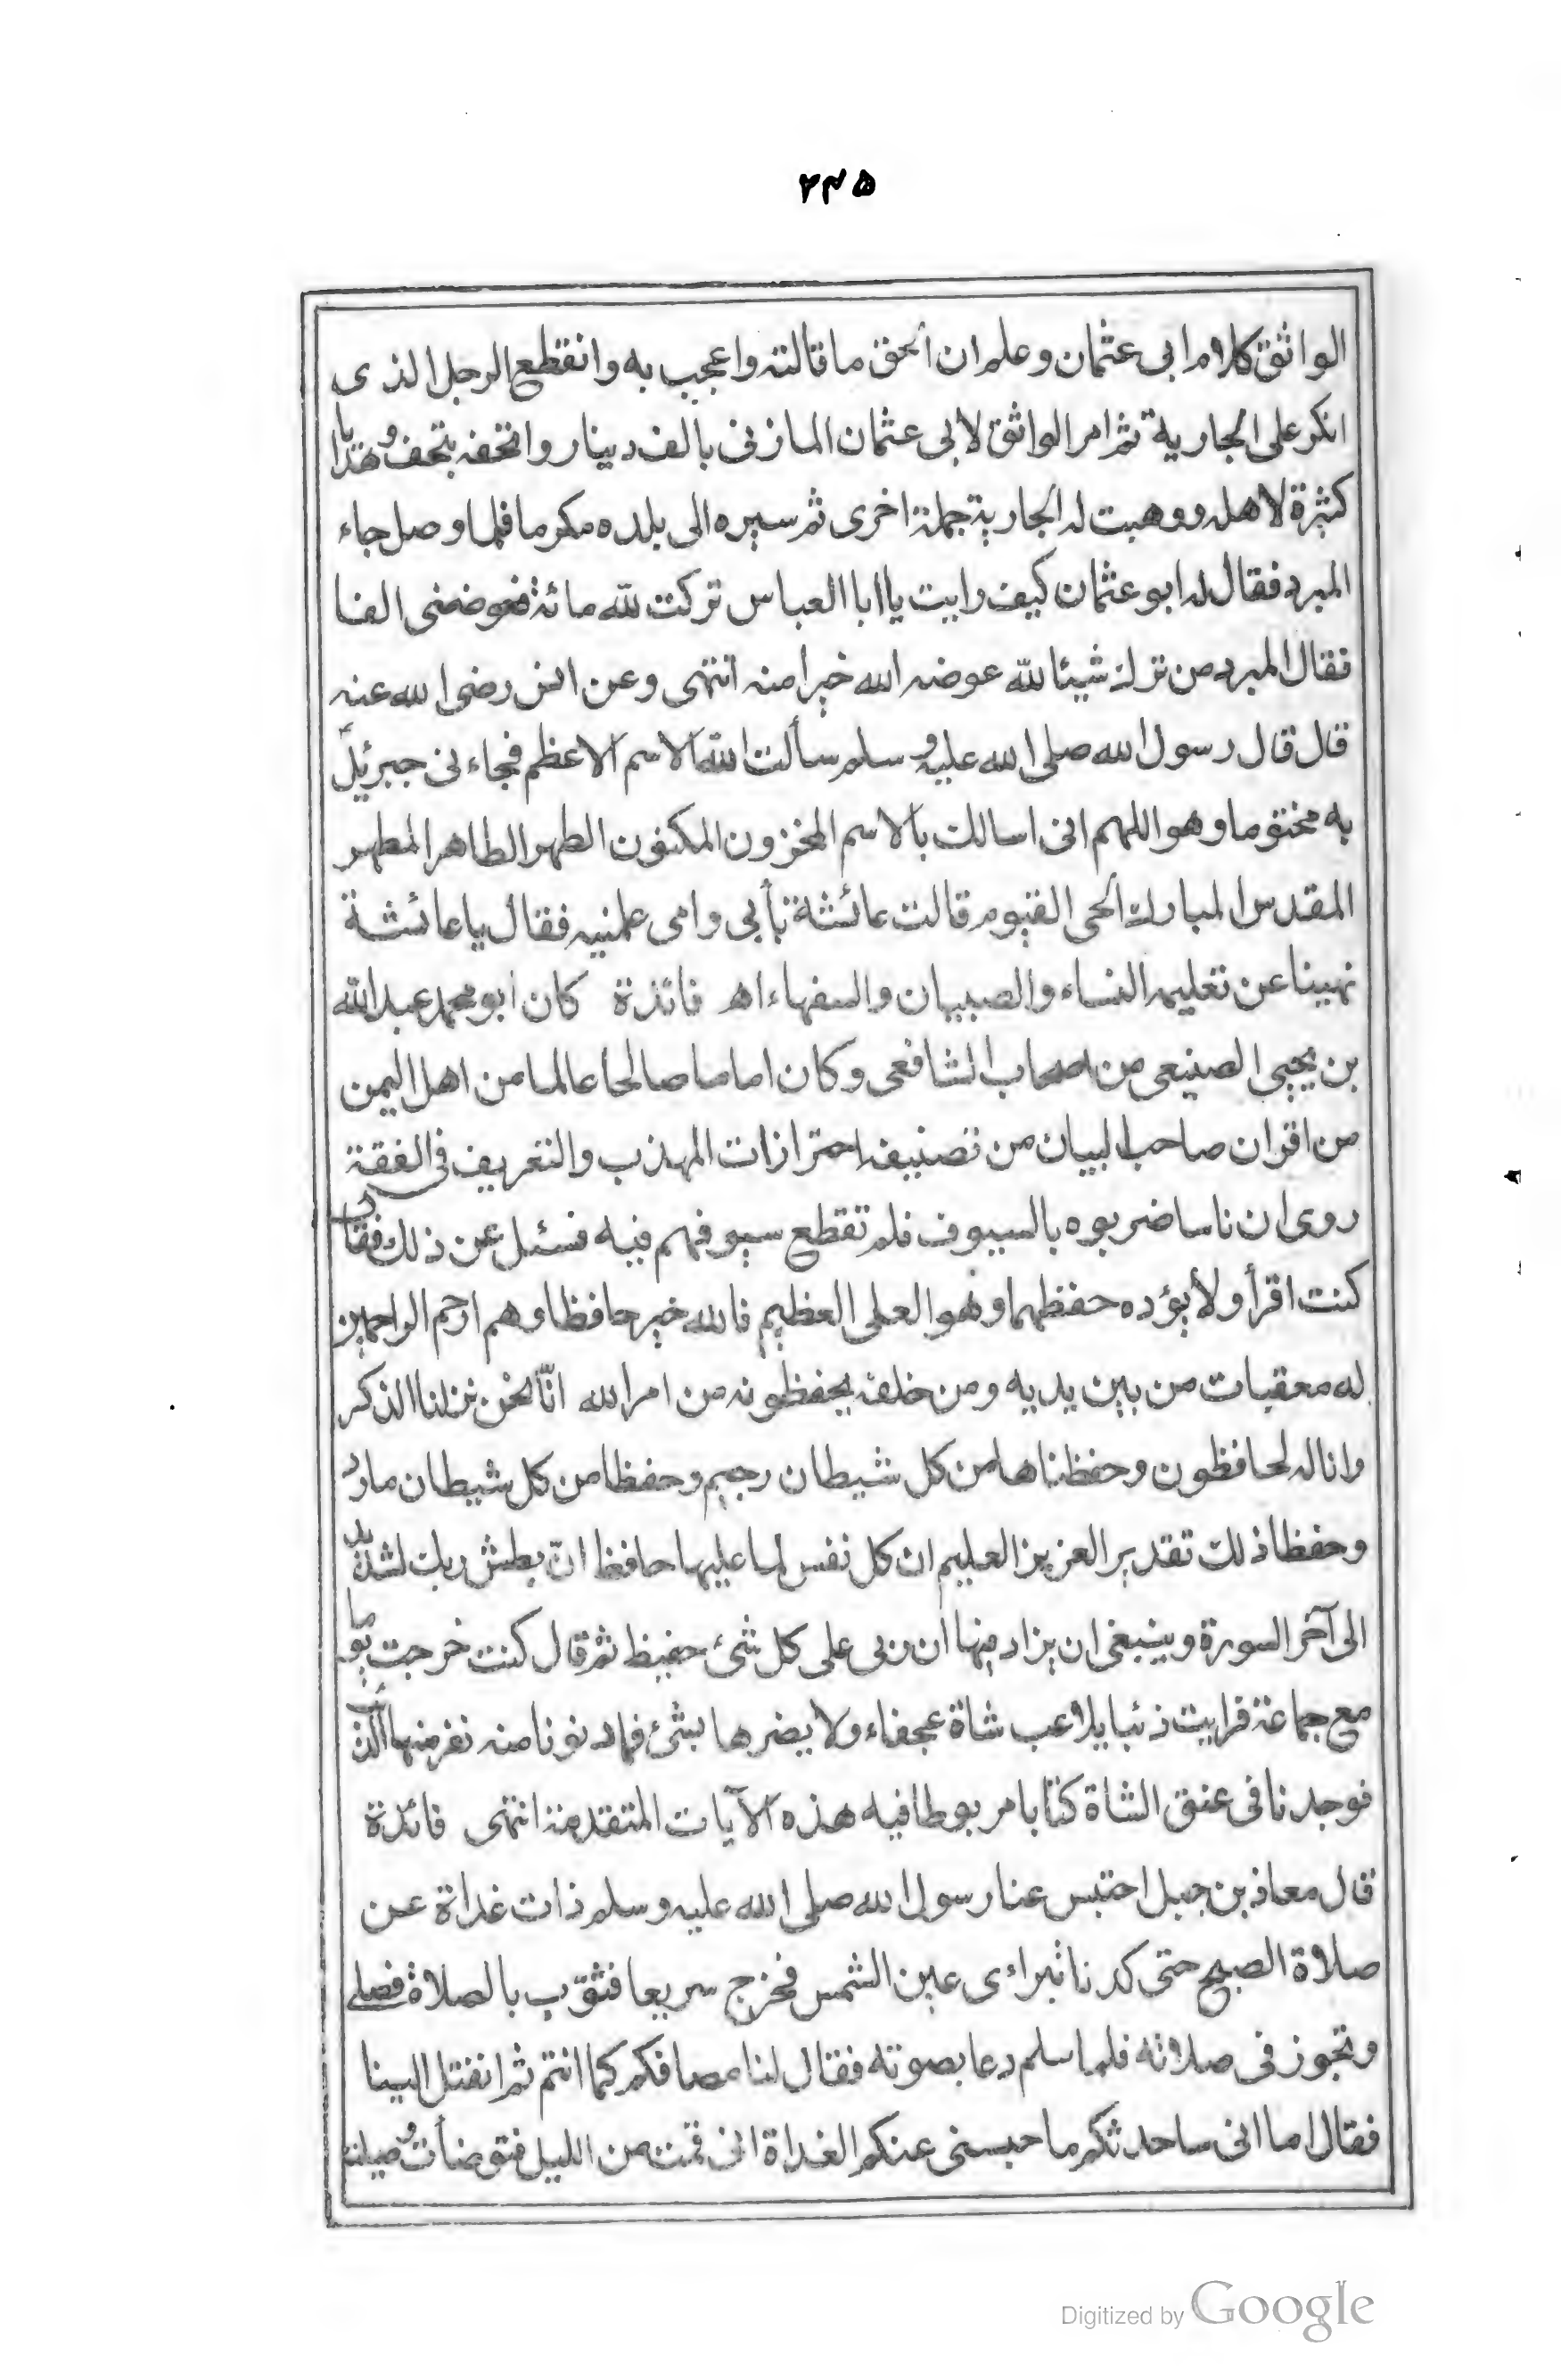 ٢٤٥
الواثق كلام ابى عثمان وعلم ان الحق ما قالته واعجب به وانقطع الرجل الذى
انكر على الجارية ثم امر الواثق لابى عثمان المازنى بالف دينار واتحفه بتحف وهدايا
كثيرة لاهله ووهبت له الجارية جملة اخرى ثم سيره الى بلده مكرما فلما وصل جاء
المبرد فقال له ابو عثمان كيف رايت يا ابا العباس تركت لله مائة فعوضنى الفا
فقال المبرد من ترك شيئا لله عوضه الله خيرا منه انتهى وعن انس رضى الله عنه
قال قال رسول الله صلى الله عليه وسلم سألت الله الاسم الاعظم فجاءنى جبرئيل
به مختوما وهو اللهم انى اسالك بالاسم المخزون المكنون الطهر الطاهر المطهر
المقدس المبارك الحى القيوم قالت عائشة بأبى وامى علمنيه فقال يا عائشة
نهينا عن تعليمه النساء والصبيان والسفهاء اه فائدة كان ابو محمد عبد الله
بن يحيى الصنيعى من اصحاب الشافعى وكان اماما صالحا عالما من اهل اليمن
من اقران صاحب البيان من تصنيفه احترازات المهذب والتعريف فى الفقه
روى ان ناسا ضربوه بالسيوف فلم تقطع سيوفهم فيه فسئل عن ذلك فقال
كنت اقرأ ولا يؤده حفظهما وهو العلى العظيم فالله خير حافظا وهو ارحم الراحمين
له معقبات من بين يديه ومن خلفه يحفظونه من امر الله انّا نحن نزلنا الذكر
وانا له لحافظون وحفظناها من كل شيطان رجيم وحفظا من كل شيطان مارد
وحفظا ذلك تقدير العزيز العليم ان كل نفس لما عليها حافظ انّ بطش ربك لشديد
الى آخر السورة وينبغى ان يزاد منها ان ربى على كل شئ حفيظ ثم قال كنت خرجت يوما
مع جماعة فرايت ذئبا يلاعب شاة عجفاء ولا يضرها بشئ فلما دنونا منه نفر منها الذئب
فوجدنا فى عنق الشاة كتابا مربوطا فيه هذه الآيات المتقدمة انتهى فائدة
قال معاذ بن جبل احتبس عنا رسول الله صلى الله عليه وسلم ذات غداة عن
صلاة الصبح حتى كدنا نتراءى عين الشمس فخرج سريعا فثوّب بالصلاة فصلى
وتجوز فى صلاته فلما سلم دعا بصوته فقال لنا مصافكم كما انتم ثم انفتل الينا
فقال اما انى ساحدثكم ما حبسنى عنكم الغداة انى قمت من الليل فتوضأت وصليت
Digitized by Google